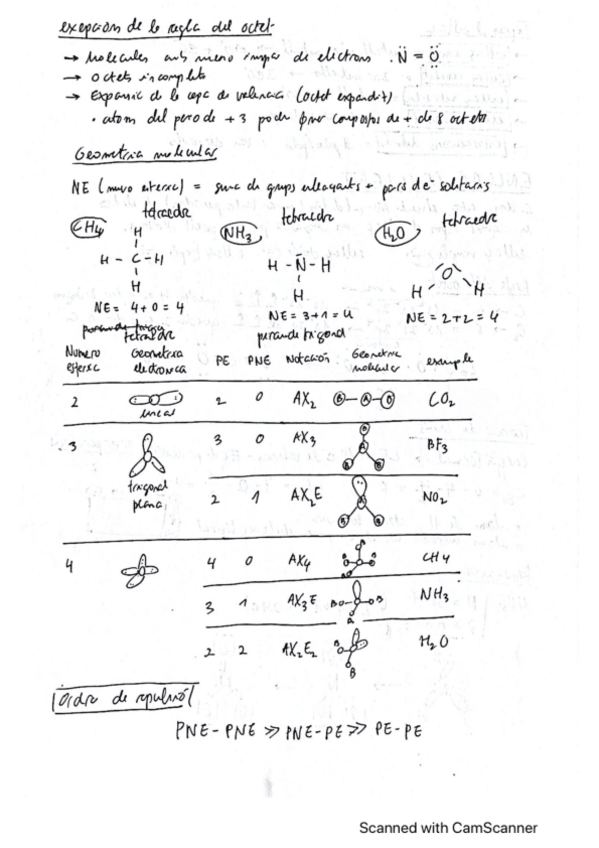 excepcions de la regla del octet
→ Molecules amb numero impar de electrons .N̈ = Ö
→ octets incomplets
→ Expansió de la capa de valencia (octet expandit)
• atoms del periode + 3 poden formar compostos de + de 8 octets
Geometria molecular
NE (numero esteric) = suma de grups enllaçants + pars de e⁻ solitaris
tetraedre tetraedre tetraedre
CH4 NH3 H2O
H
H - C - H H - N - H O
H H H H
NE = 4+0 = 4 NE = 3+1 = 4 NE = 2+2 = 4
tetraedre piramide trigonal
Numero esteric Geometria electronica PE PNE Notación Geometria molecular exemple
2 lineal 2 0 AX2 B-A-B CO2
3 trigonal plana 3 0 AX3 BF3
2 1 AX2E NO2
4 4 0 AX4 CH4
3 1 AX3E NH3
2 2 AX2E2 H2O
Ordre de repulsió
PNE-PNE >> PNE-PE >> PE-PE
Scanned with CamScanner